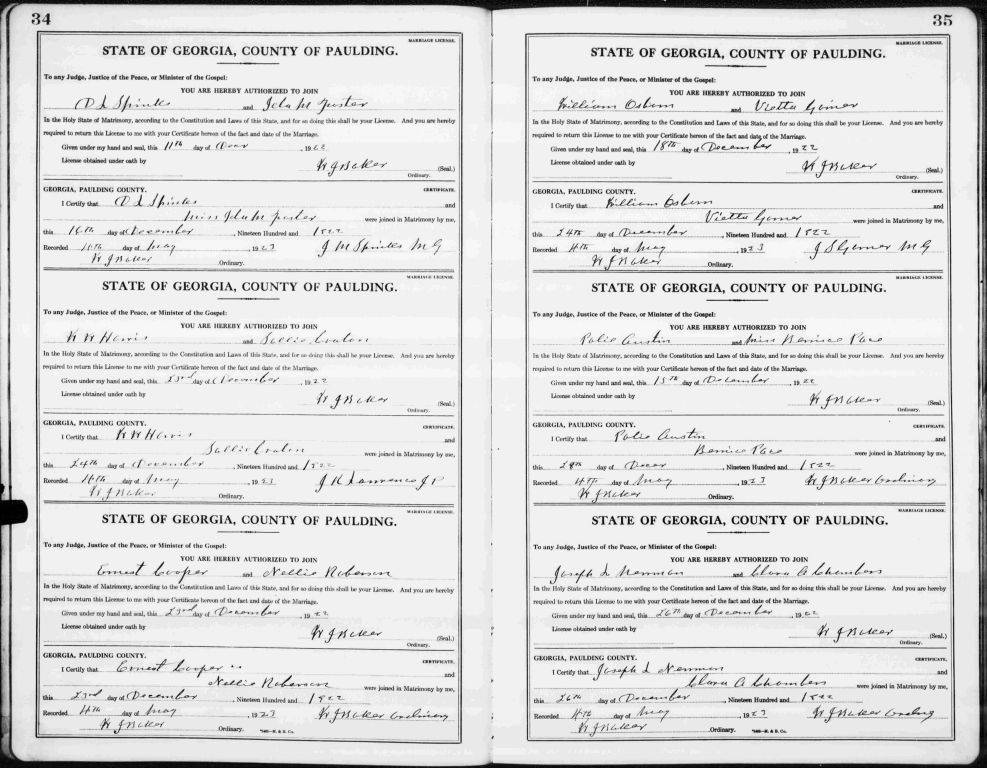 34
MARRIAGE LICENSE.
STATE OF GEORGIA, COUNTY OF PAULDING.
To any Judge, Justice of the Peace, or Minister of the Gospel:
YOU ARE HEREBY AUTHORIZED TO JOIN
O L Spinks and Ida M Foster
In the Holy State of Matrimony, according to the Constitution and Laws of this State, and for so doing this shall be your License. And you are hereby
required to return this License to me with your Certificate hereon of the fact and date of the Marriage.
Given under my hand and seal, this 11th day of , 1922
License obtained under oath by
W J Baker (Seal.)
Ordinary.
GEORGIA, PAULDING COUNTY. CERTIFICATE.
I Certify that O L Spinks and
Miss Ida M Foster were joined in Matrimony by me,
this 16th day of December , Nineteen Hundred and 1922
Recorded day of May , 1923 J M Spinks M G
W J Baker Ordinary.
MARRIAGE LICENSE.
STATE OF GEORGIA, COUNTY OF PAULDING.
To any Judge, Justice of the Peace, or Minister of the Gospel:
YOU ARE HEREBY AUTHORIZED TO JOIN
W W Harris and Sallie
In the Holy State of Matrimony, according to the Constitution and Laws of this State, and for so doing this shall be your License. And you are hereby
required to return this License to me with your Certificate hereon of the fact and date of the Marriage.
Given under my hand and seal, this 23rd day of November , 1922
License obtained under oath by
W J Baker (Seal.)
Ordinary.
GEORGIA, PAULDING COUNTY. CERTIFICATE.
I Certify that W W Harris and
Sallie were joined in Matrimony by me,
this 24th day of November , Nineteen Hundred and 1922
Recorded 4th day of May , 1923 J H Lawrence J P
W J Baker Ordinary.
MARRIAGE LICENSE.
STATE OF GEORGIA, COUNTY OF PAULDING.
To any Judge, Justice of the Peace, or Minister of the Gospel:
YOU ARE HEREBY AUTHORIZED TO JOIN
Ernest Cooper and Nellie Roberson
In the Holy State of Matrimony, according to the Constitution and Laws of this State, and for so doing this shall be your License. And you are hereby
required to return this License to me with your Certificate hereon of the fact and date of the Marriage.
Given under my hand and seal, this 23rd day of December , 1922
License obtained under oath by
W J Baker (Seal.)
Ordinary.
GEORGIA, PAULDING COUNTY. CERTIFICATE.
I Certify that Ernest Cooper and
Nellie Roberson were joined in Matrimony by me,
this 23rd day of December , Nineteen Hundred and 1922
Recorded 4th day of May , 1923 W J Baker Ordinary
W J Baker Ordinary.
35
MARRIAGE LICENSE.
STATE OF GEORGIA, COUNTY OF PAULDING.
To any Judge, Justice of the Peace, or Minister of the Gospel:
YOU ARE HEREBY AUTHORIZED TO JOIN
William Osburn and Vietta Garner
In the Holy State of Matrimony, according to the Constitution and Laws of this State, and for so doing this shall be your License. And you are hereby
required to return this License to me with your Certificate hereon of the fact and date of the Marriage.
Given under my hand and seal, this 18th day of December , 1922
License obtained under oath by
W J Baker (Seal.)
Ordinary.
GEORGIA, PAULDING COUNTY. CERTIFICATE.
I Certify that William Osburn and
Vietta Garner were joined in Matrimony by me,
this 24th day of December , Nineteen Hundred and 1922
Recorded 4th day of May , 1923 J S Garner M G
W J Baker Ordinary.
MARRIAGE LICENSE.
STATE OF GEORGIA, COUNTY OF PAULDING.
To any Judge, Justice of the Peace, or Minister of the Gospel:
YOU ARE HEREBY AUTHORIZED TO JOIN
Austin and Miss Bernice Pace
In the Holy State of Matrimony, according to the Constitution and Laws of this State, and for so doing this shall be your License. And you are hereby
required to return this License to me with your Certificate hereon of the fact and date of the Marriage.
Given under my hand and seal, this 15th day of December , 1922
License obtained under oath by
W J Baker (Seal.)
Ordinary.
GEORGIA, PAULDING COUNTY. CERTIFICATE.
I Certify that Austin and
Bernice Pace were joined in Matrimony by me,
this day of , Nineteen Hundred and 1922
Recorded 4th day of May , 1923 W J Baker Ordinary
W J Baker Ordinary.
MARRIAGE LICENSE.
STATE OF GEORGIA, COUNTY OF PAULDING.
To any Judge, Justice of the Peace, or Minister of the Gospel:
YOU ARE HEREBY AUTHORIZED TO JOIN
Joseph L Newman and Clara A Chambers
In the Holy State of Matrimony, according to the Constitution and Laws of this State, and for so doing this shall be your License. And you are hereby
required to return this License to me with your Certificate hereon of the fact and date of the Marriage.
Given under my hand and seal, this 26th day of December , 1922
License obtained under oath by
W J Baker (Seal.)
Ordinary.
GEORGIA, PAULDING COUNTY. CERTIFICATE.
I Certify that Joseph L Newman and
Clara A Chambers were joined in Matrimony by me,
this 26th day of December , Nineteen Hundred and 1922
Recorded 4th day of May , 1923 W J Baker Ordinary
W J Baker Ordinary.